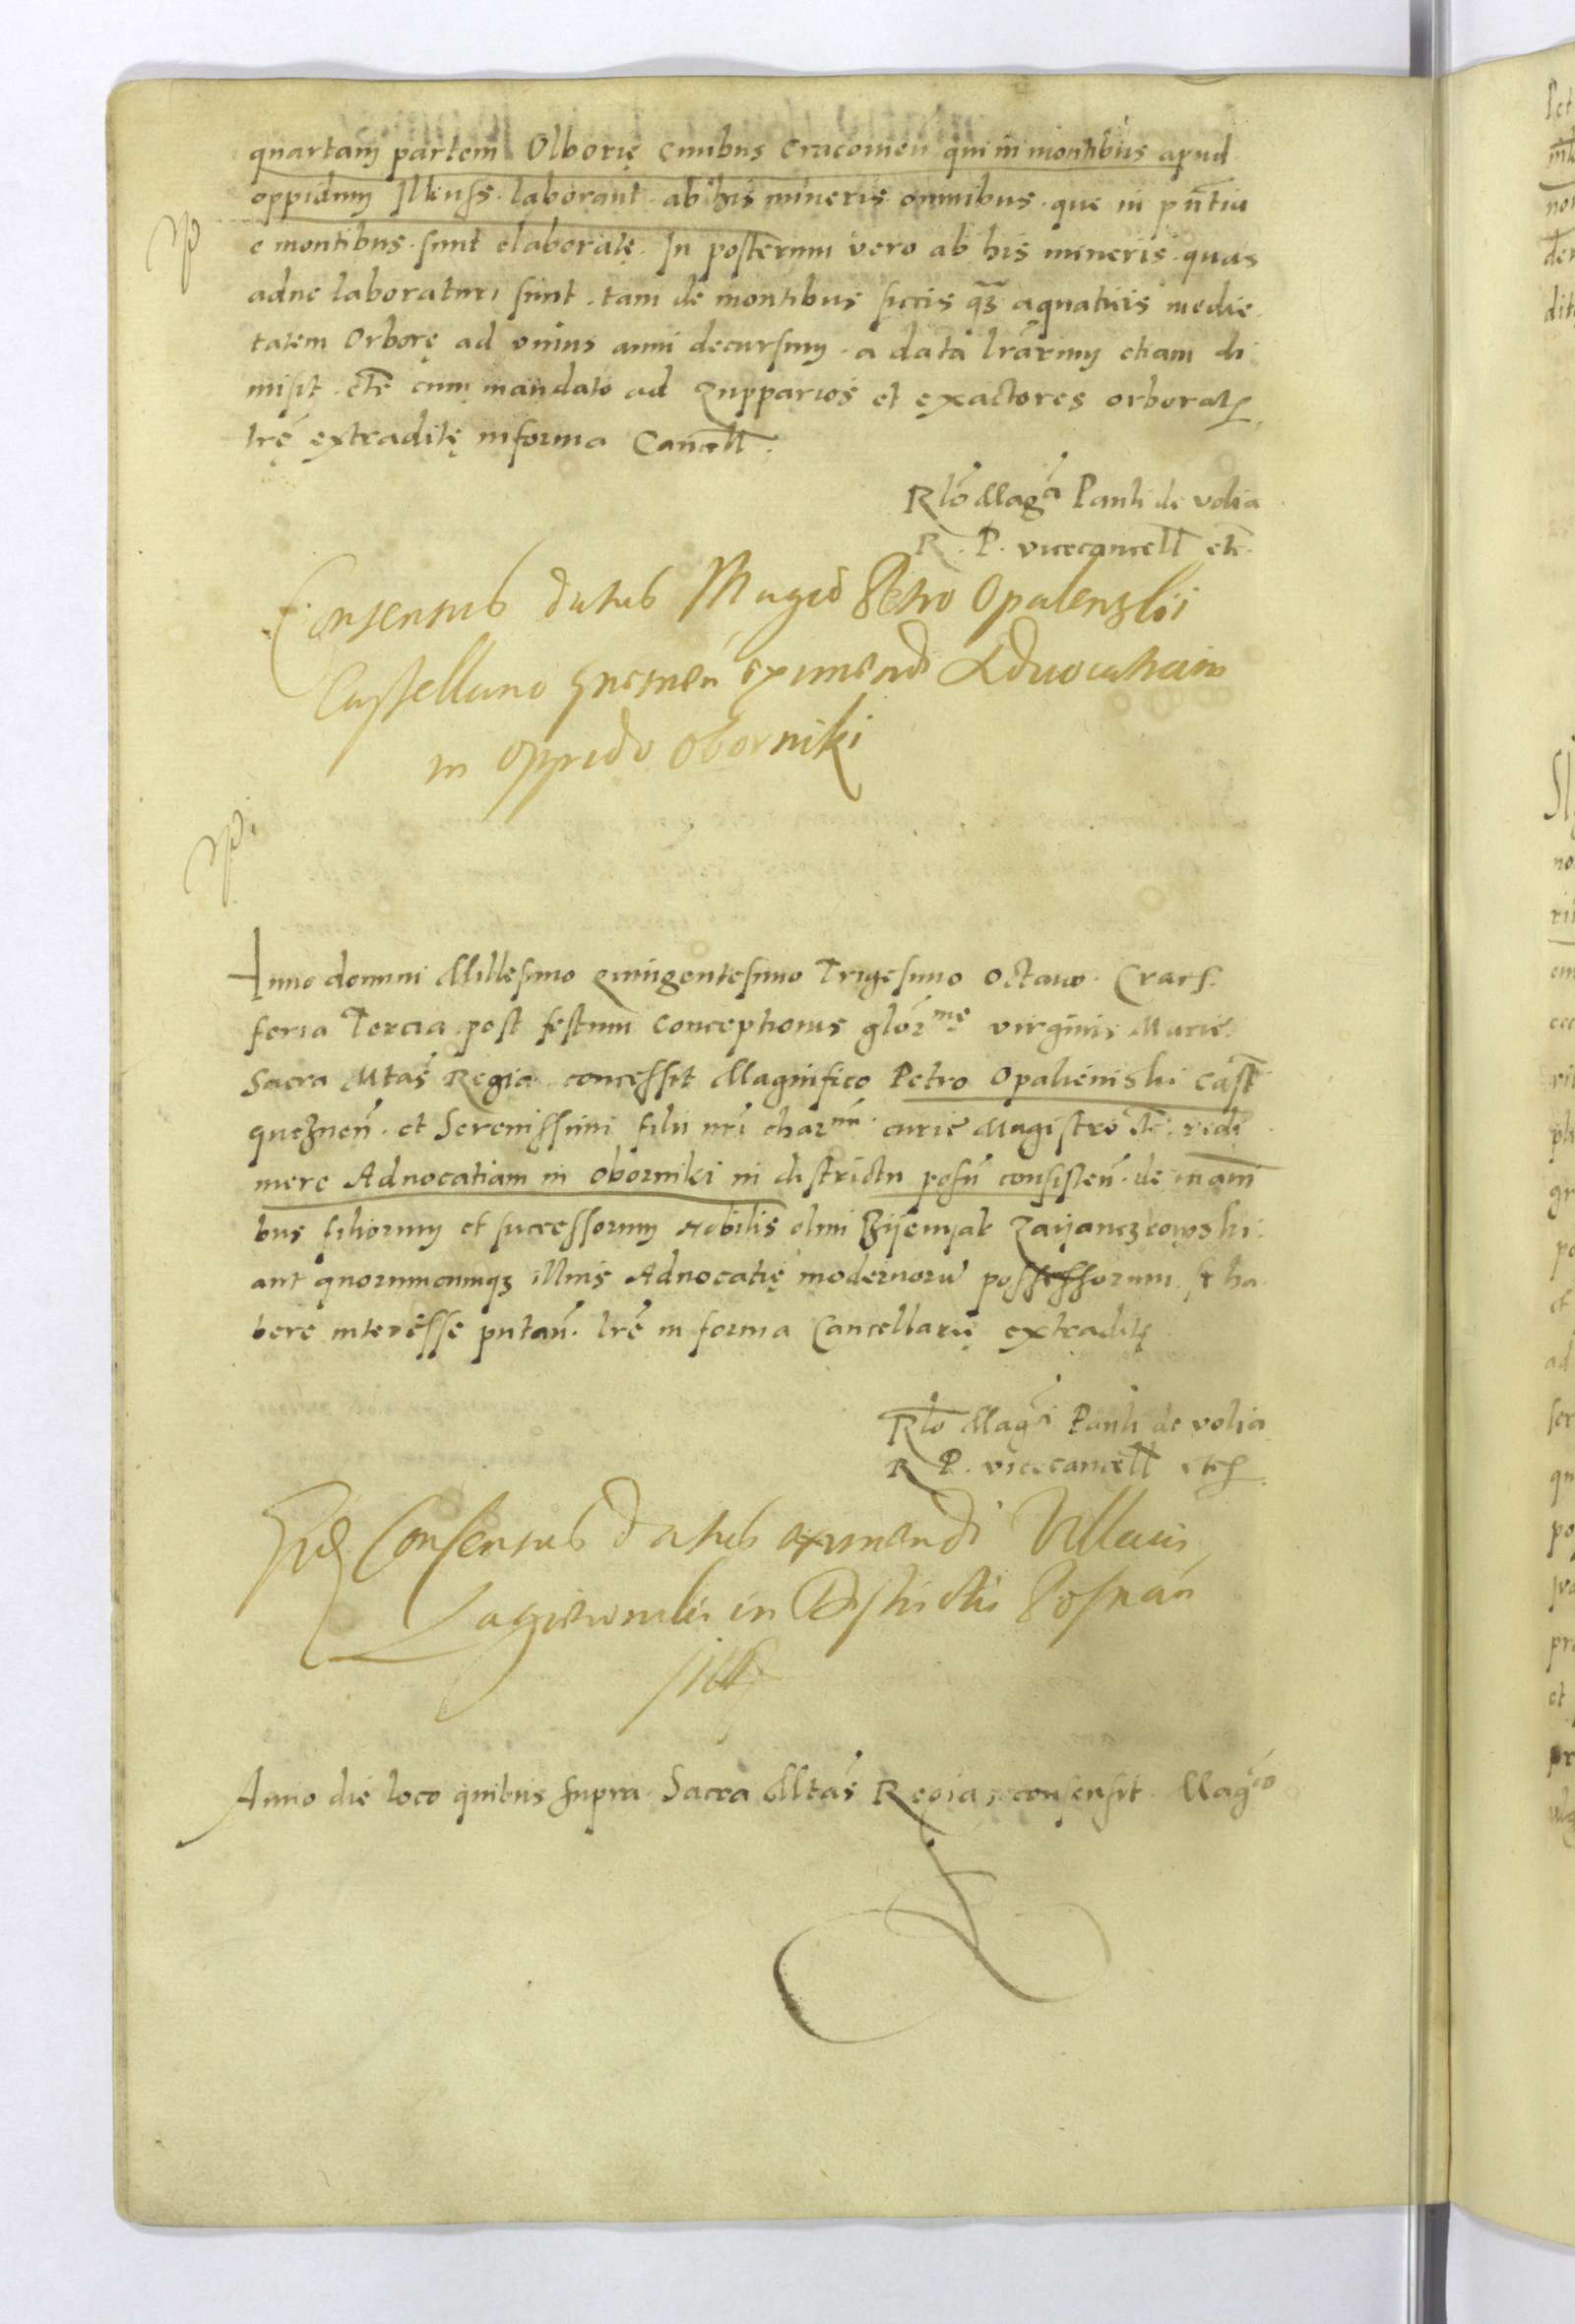 quartam partem Olborę ciuibus cracouien qui in montibus apud
oppidum Ilkuss. laborant. ab his mineris omnibus. que in pn̄tia
e montibus. sunt elaboratę. In posterum vero ab his mineris. quas
adhuc laboraturi sunt. tam de montibus siccis qȝ aquaticis medie
tatem Orborę ad vnius anni decursum. a data lrārum etiam di
misit. etc̄ cum mandato ad Zupparios et exactores orborae
lrē extraditę in forma Cancell.
Rlō Magci Pauli de volia
R. P. vicecancell etc.
Consensus datus Magco Petro Opalenski
Castellano Gnesnen eximendi Aduocatiam
in Oppido Oborniki
Anno domini Millesimo quingentesimo Trigesimo octauo. Crac.
feria Tercia post festum conceptionis glōrme virginis Marie
Sacra Mtas Regia concessit Magnifico Petro Opalienishi cast
gneznen. et Serenissimi filii nrī charmi curie Magistro etc. redi
mere Aduocatiam in oborniki in districtu posn consisten. de mani
bus filiorum et successorum Nobilis olim Zaijanczkowski
aut quorumcumqȝ illius Aduocatię modernorū possessorum. se ha
bere interesse putan. lrē in forma Cancellarię extraditę
Rlo Magci Pauli de volia
R P. vicecancell etc.
Consensus datus eximendi Villam
in Districtu Posnan
Anno die loco quibus supra. Sacra Mtas Regia consensit. Magco